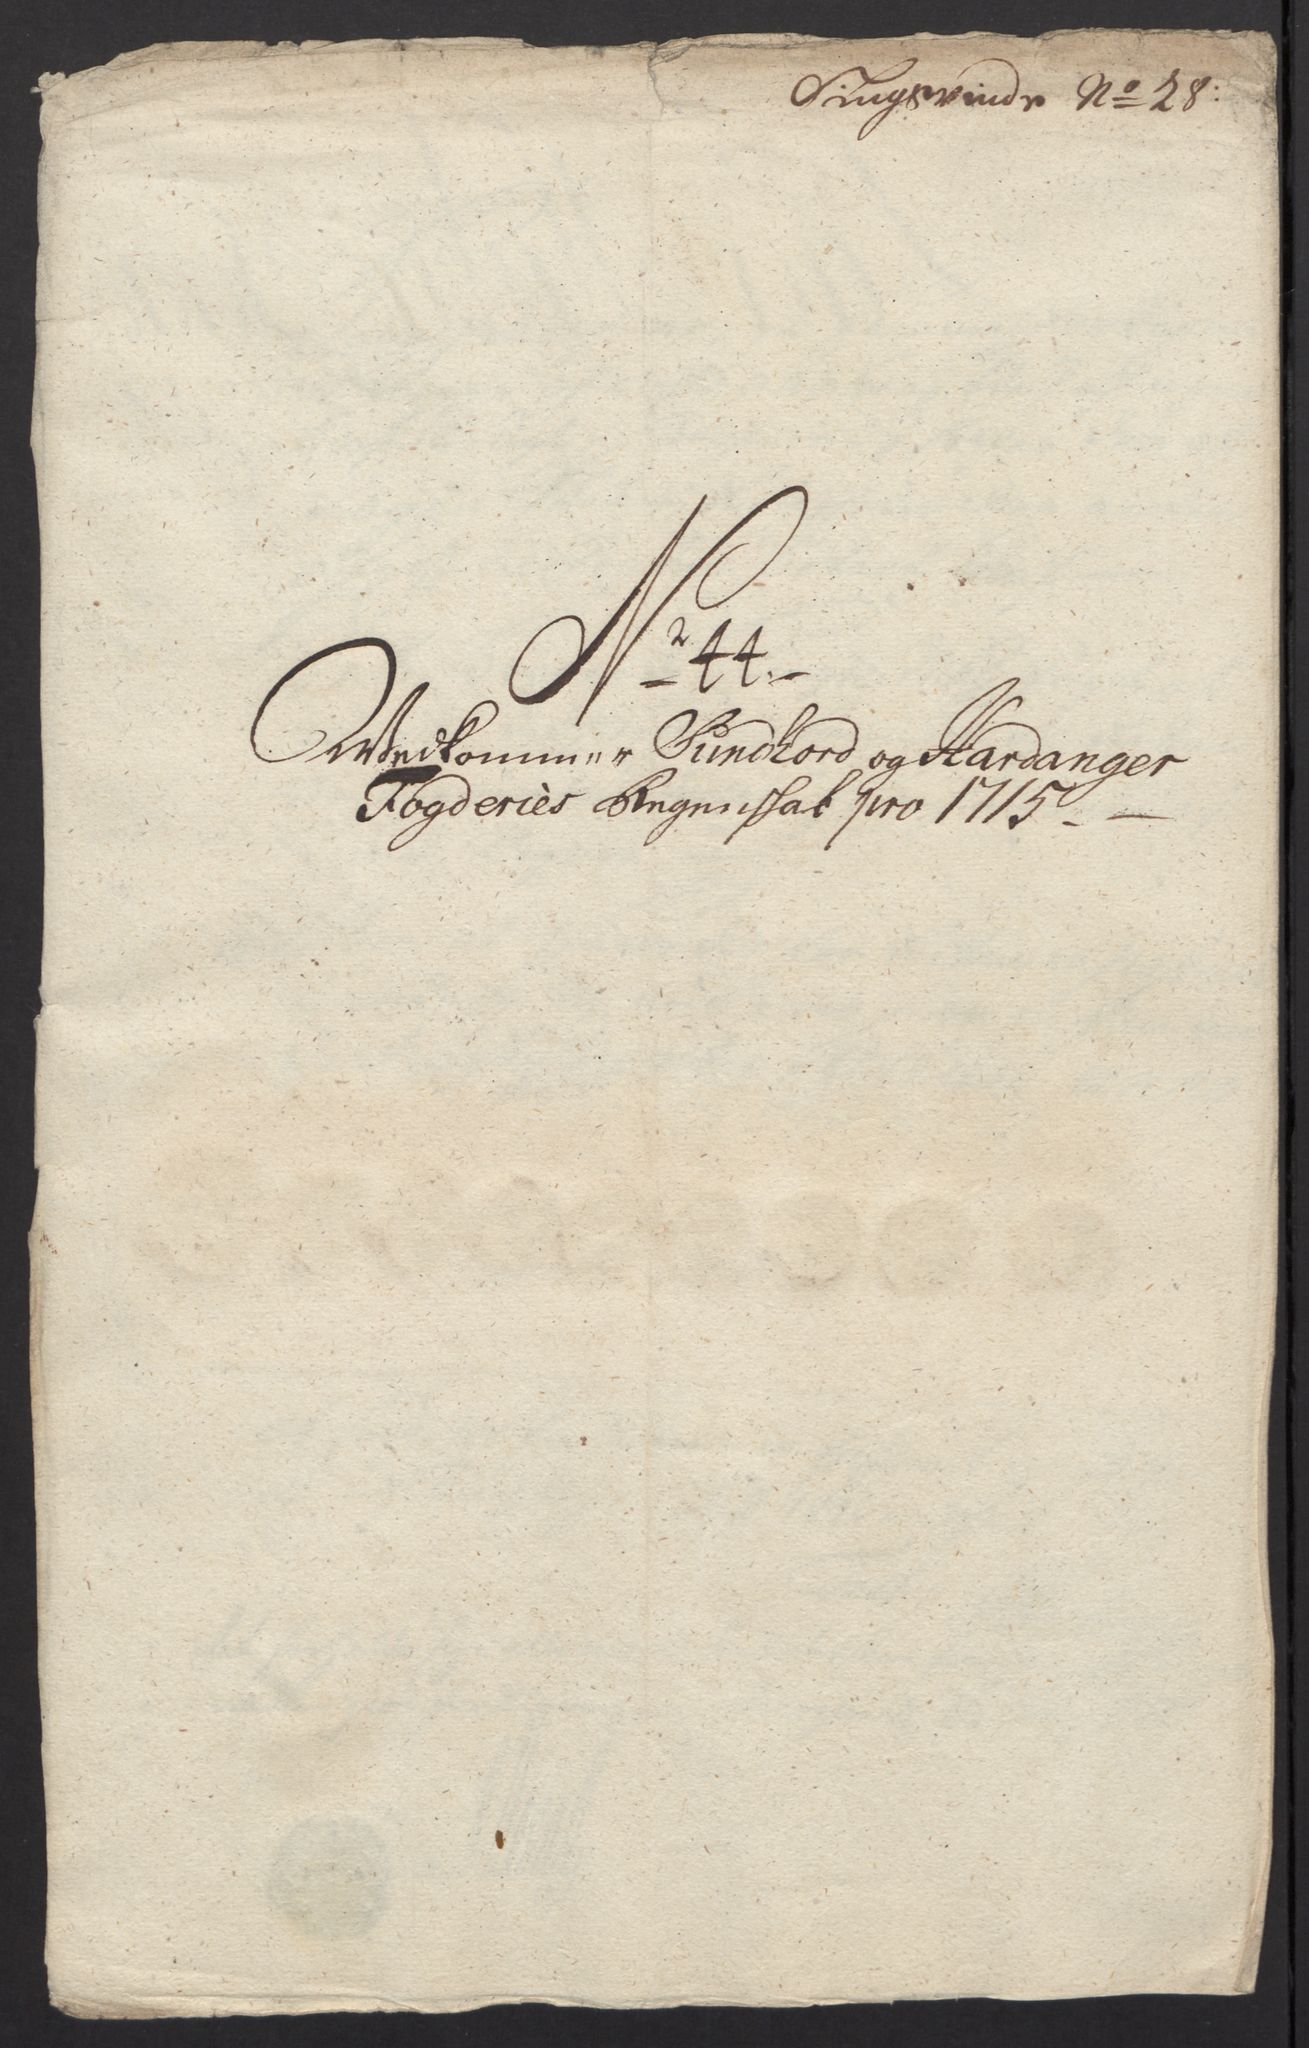 Tingsvinde No 28:
No 44.
Vedkommer Sundhord og Hardanger
Fogderies Regenskab pro 1715